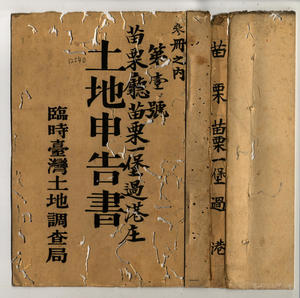 苗栗 苗栗一堡 過港
参冊之內
第壹號
苗栗廳苗栗一堡過港庄
土地申告書
臨時臺灣土地調查局